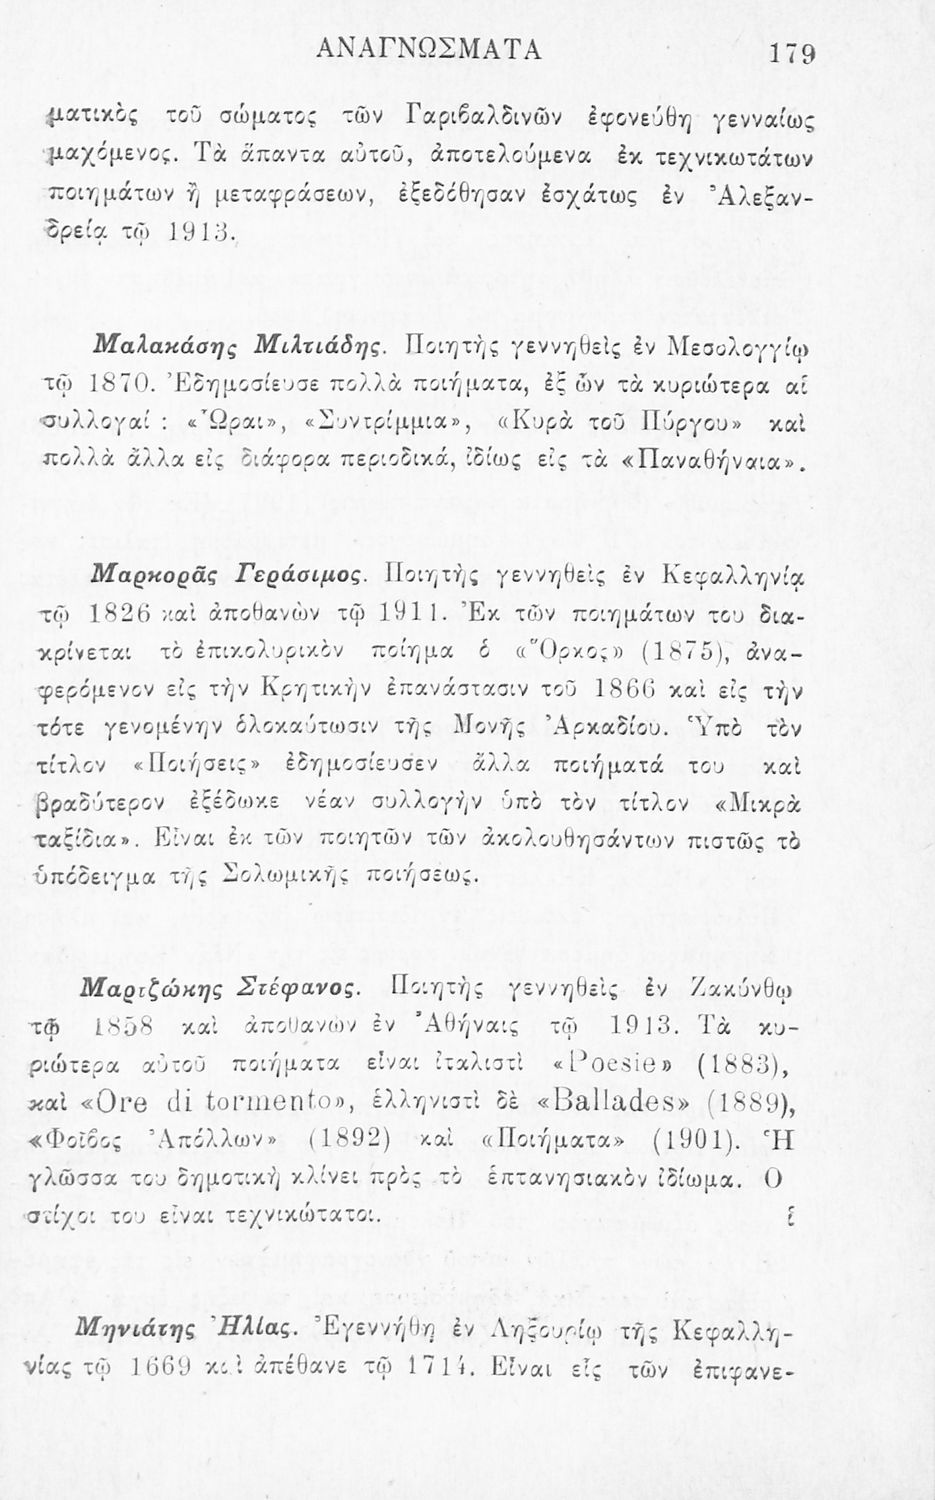 ΑΝΑΓΝΩΣΜΑΤΑ 179
ματικὸς τοῦ σώματος τῶν Γαριβαλδινῶν ἐφονεύθη γενναίως
μαχόμενος. Τὰ ἅπαντα αὐτοῦ, ἀποτελούμενα ἐκ τεχνικωτάτων
ποιημάτων ἢ μεταφράσεων, ἐξεδόθησαν ἐσχάτως ἐν Ἀλεξαν-
δρείᾳ τῷ 1913.
Μαλακάσης Μιλτιάδης. Ποιητὴς γεννηθεὶς ἐν Μεσολογγίῳ
τῷ 1870. Ἐδημοσίευσε πολλὰ ποιήματα, ἐξ ὧν τὰ κυριώτερα αἱ
συλλογαί : «Ὧραι», «Συντρίμμια», «Κυρὰ τοῦ Πύργου» καὶ
πολλὰ ἄλλα εἰς διάφορα περιοδικά, ἰδίως εἰς τὰ «Παναθήναια».
Μαρκορᾶς Γεράσιμος. Ποιητὴς γεννηθεὶς ἐν Κεφαλληνίᾳ
τῷ 1826 καὶ ἀποθανὼν τῷ 1911. Ἐκ τῶν ποιημάτων του δια-
κρίνεται τὸ ἐπικολυρικὸν ποίημα ὁ «Ὅρκος» (1875), ἀνα-
φερόμενον εἰς τὴν Κρητικὴν ἐπανάστασιν τοῦ 1866 καὶ εἰς τὴν
τότε γενομένην ὁλοκαύτωσιν τῆς Μονῆς Ἀρκαδίου. Ὑπὸ τὸν
τίτλον «Ποιήσεις» ἐδημοσίευσεν ἄλλα ποιήματά του καὶ
βραδύτερον ἐξέδωκε νέαν συλλογὴν ὑπὸ τὸν τίτλον «Μικρὰ
ταξίδια». Εἶναι ἐκ τῶν ποιητῶν τῶν ἀκολουθησάντων πιστῶς τὸ
ὑπόδειγμα τῆς Σολωμικῆς ποιήσεως.
Μαρτζώκης Στέφανος. Ποιητὴς γεννηθεὶς ἐν Ζακύνθῳ
τῷ 1858 καὶ ἀποθανὼν ἐν Ἀθήναις τῷ 1913. Τὰ κυ-
ριώτερα αὐτοῦ ποιήματα εἶναι ἰταλιστὶ «Poesie» (1883),
καὶ «Ore di tormento», ἑλληνιστὶ δὲ «Ballades» (1889),
«Φοῖβος Ἀπόλλων» (1892) καὶ «Ποιήματα» (1901). Ἡ
γλῶσσα του δημοτικὴ κλίνει πρὸς τὸ ἑπτανησιακὸν ἰδίωμα. Ο
στίχοι του εἶναι τεχνικώτατοι. ἱ
Μηνιάτης Ἠλίας. Ἐγεννήθη ἐν Ληξουρίῳ τῆς Κεφαλλη-
νίας τῷ 1669 καὶ ἀπέθανε τῷ 1714. Εἶναι εἷς τῶν ἐπιφανε-